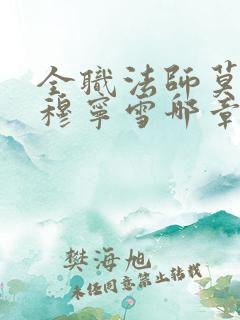 全職法師莫
穆寧雪那章
樊海旭
未经同意禁止转载